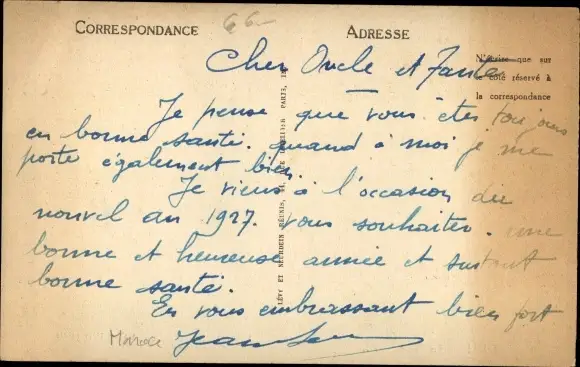 CORRESPONDANCE
66-
ADRESSE
N'écrire que sur
le côté réservé à
la correspondance
Cher Oncle et Tante
Je pense que vous êtes toujours
en bonne santé. quand à moi je me
porte également bien.
Je viens à l'occasion du
nouvel an 1927. vous souhaiter. une
bonne et heureuse année et surtout
bonne santé.
En vous embrassant bien fort
LÉVY ET NEURDEIN RÉUNIS, 44, RUE LETELLIER PARIS